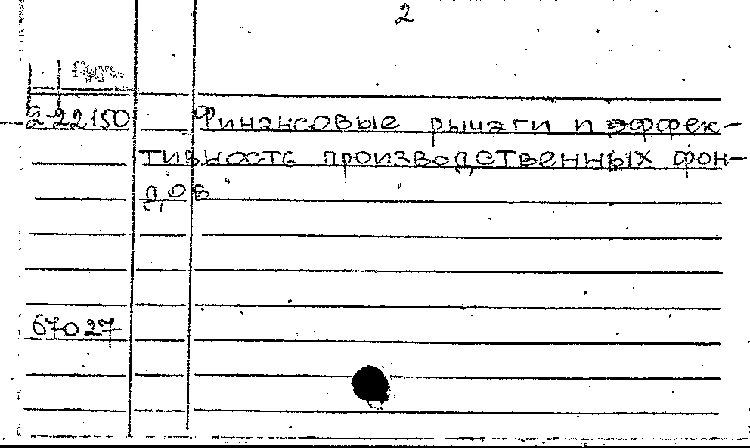 2
2-22150 Финансовые рычаги и эффек-
тивность производственных фон-
дов
67027